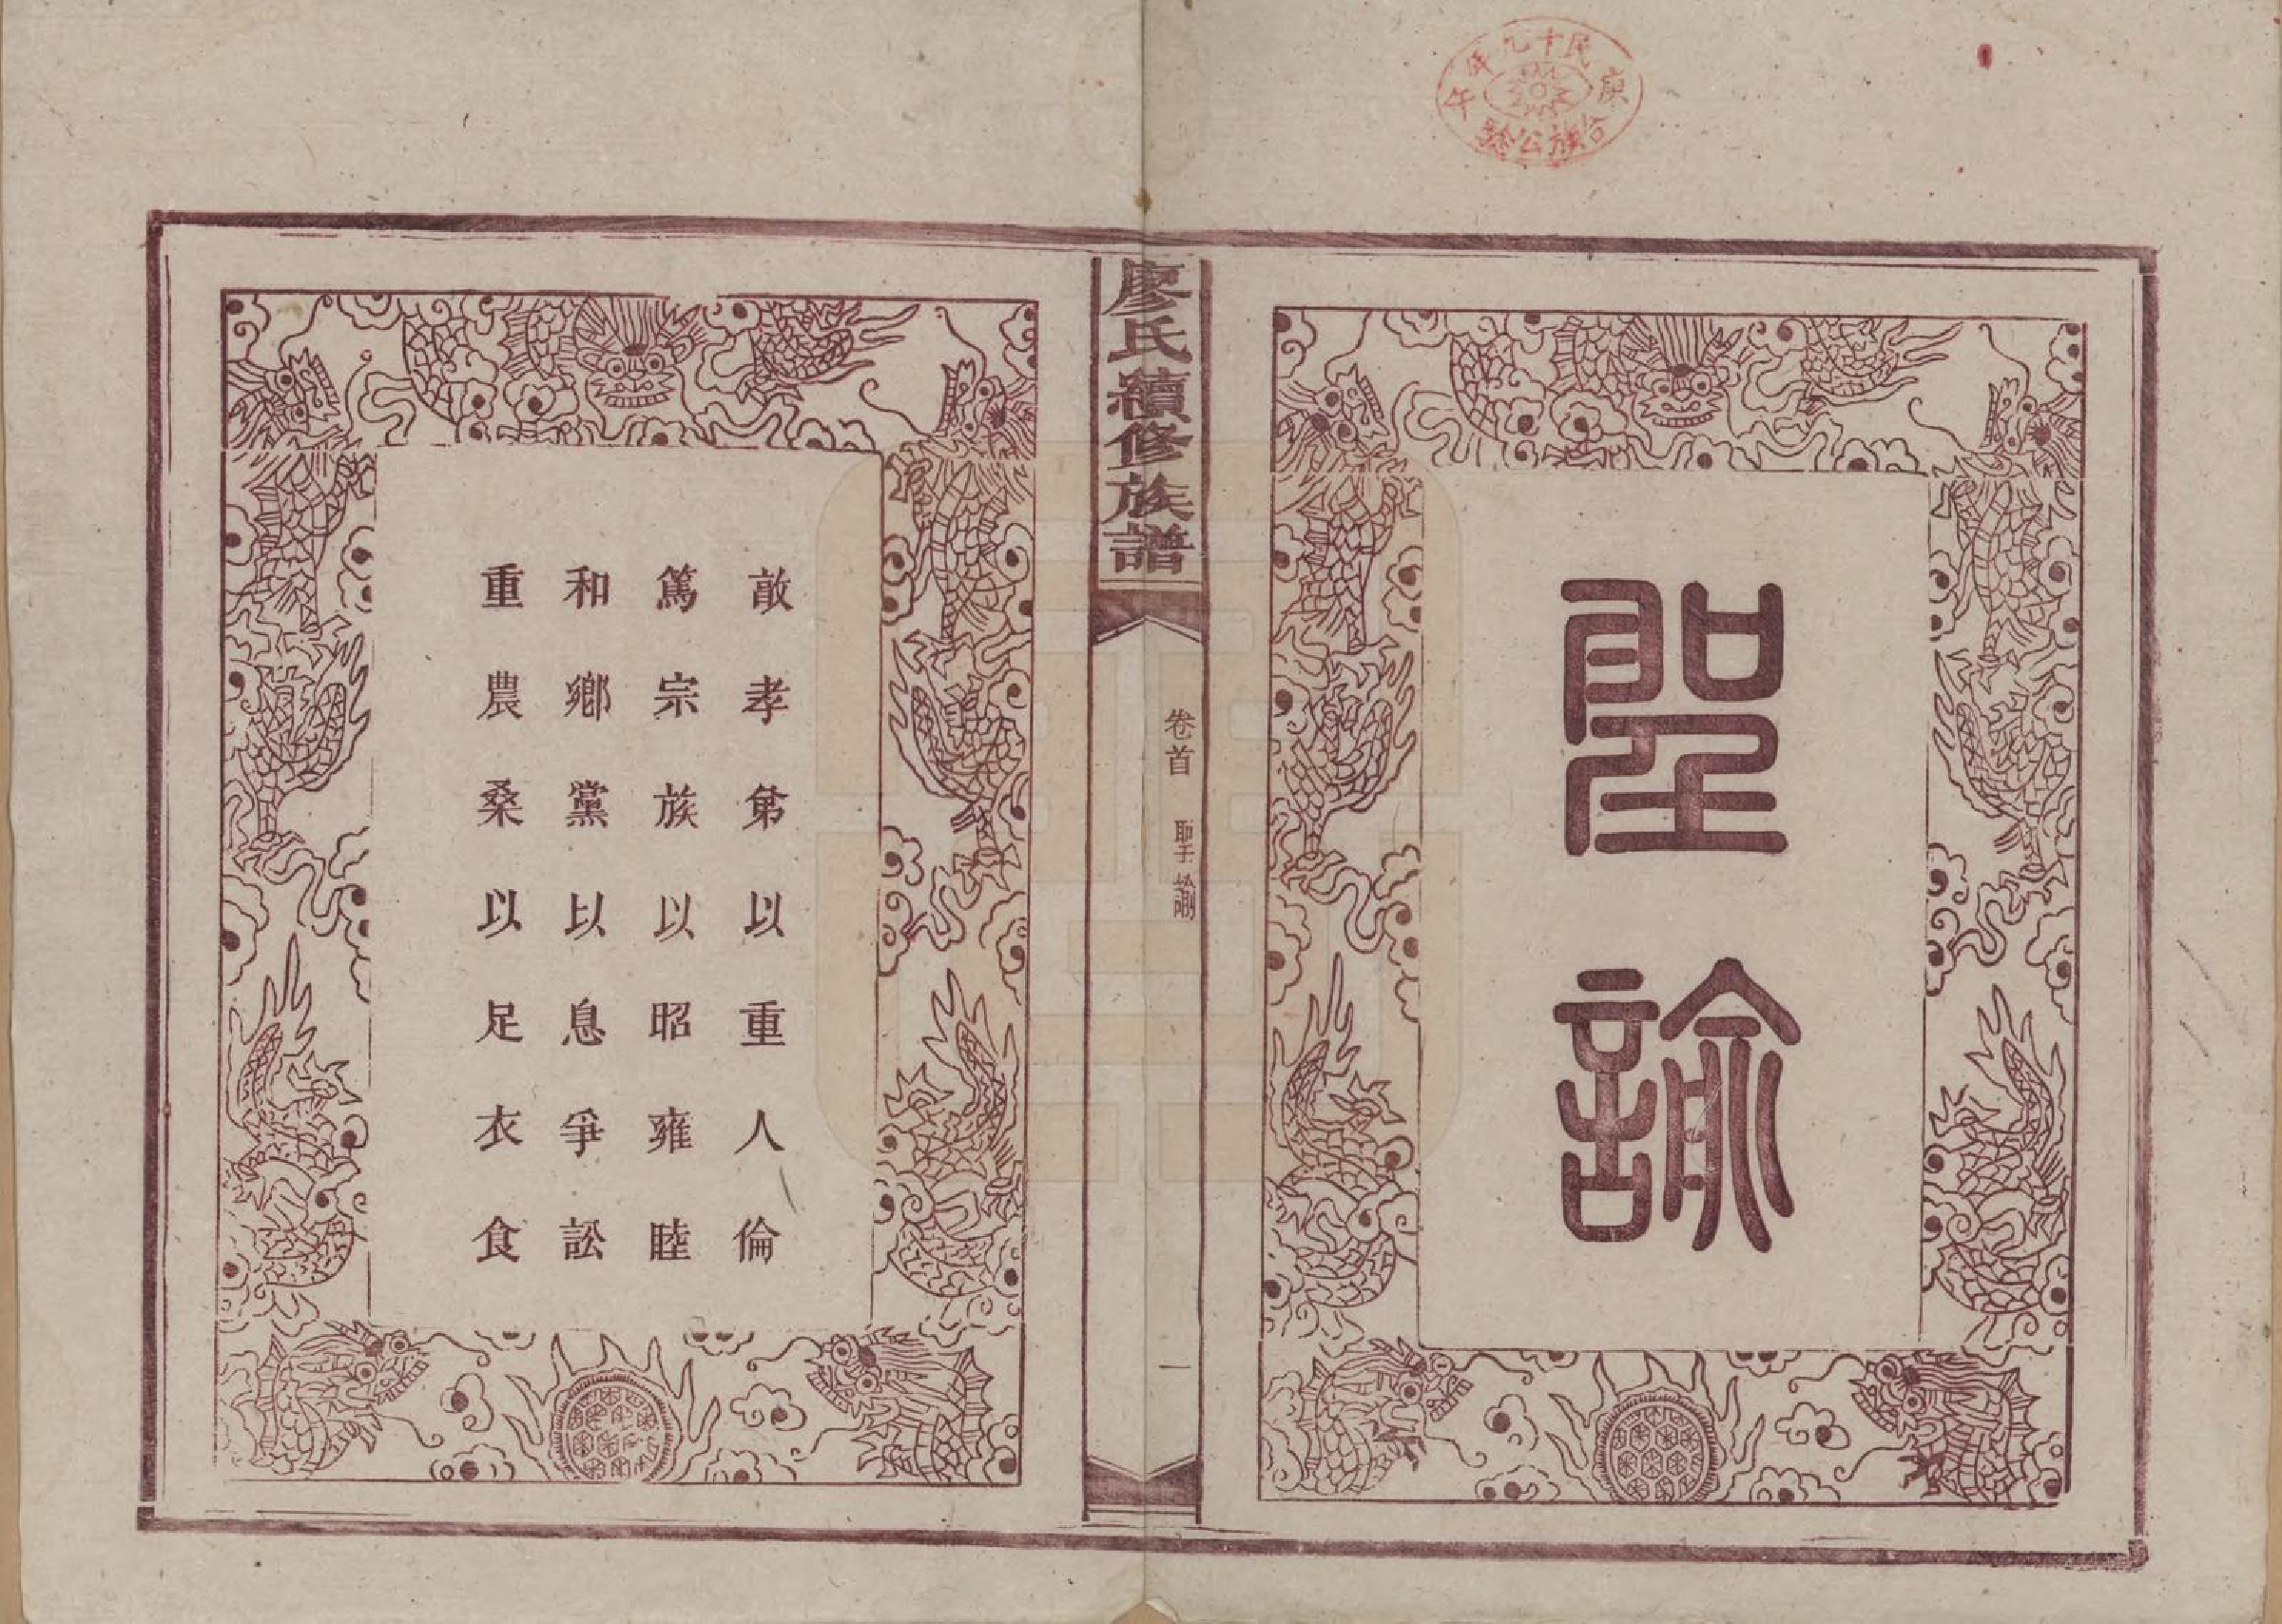 民十九年
庚午
合族公驗
聖諭
廖氏續修族譜
卷首
聖諭
一
敦孝弟以重人倫
篤宗族以昭雍睦
和鄉黨以息爭訟
重農桑以足衣食